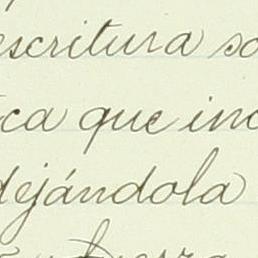 escritura so
ca que inc
dejándola